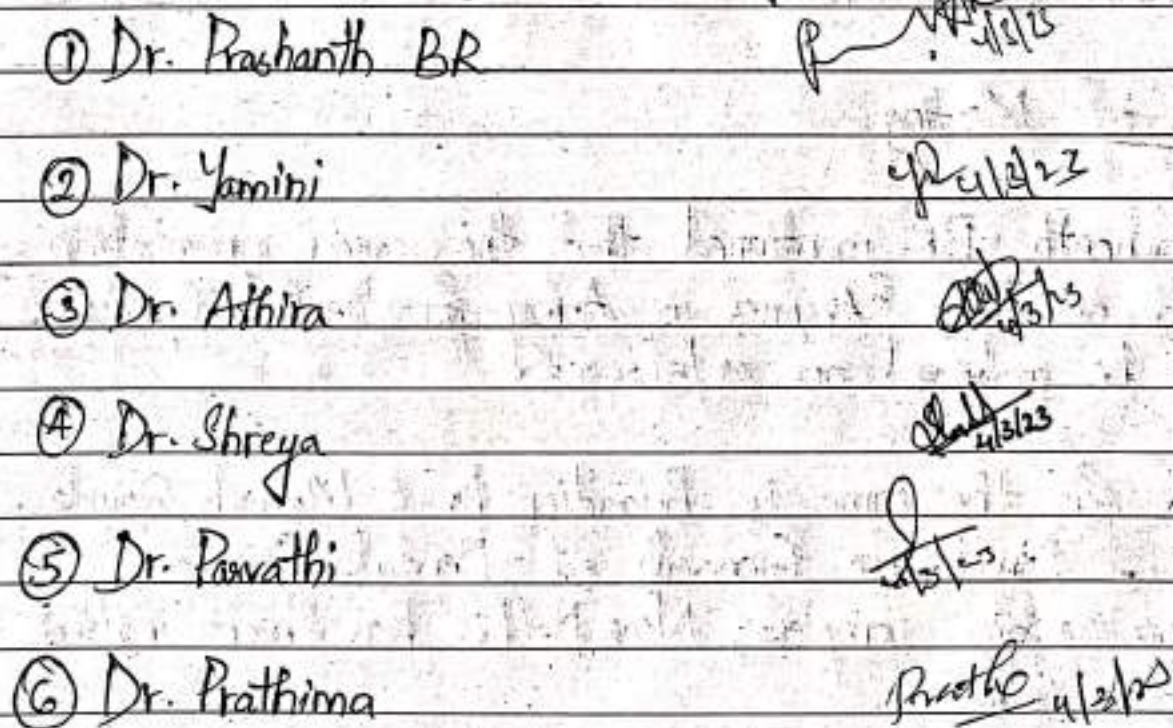 ① Dr. Prashanth BR 4/3/23
② Dr. Yamini 4/3/23
③ Dr. Athira 4/3/23
④ Dr. Shreya 4/3/23
⑤ Dr. Parvathi 4/3/23
⑥ Dr. Prathima 4/3/23